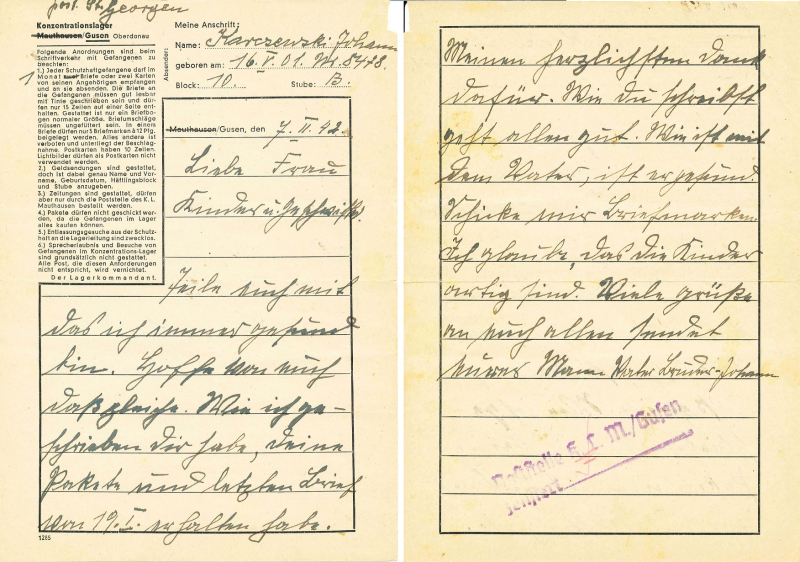 post. St. Georgen
Konzentrationslager
Mauthausen/Gusen Oberdonau
Folgende Anordnungen sind beim
Schriftverkehr mit Gefangenen zu
beachten:
1.) Jeder Schutzhaftgefangene darf im
1 Monat zwei Briefe oder zwei Karten
von seinen Angehörigen empfangen
und an sie absenden. Die Briefe an
die Gefangenen müssen gut lesbar
mit Tinte geschrieben sein und dür-
fen nur 15 Zeilen auf einer Seite ent-
halten. Gestattet ist nur ein Briefbo-
gen normaler Größe. Briefumschläge
müssen ungefüttert sein. In einem
Briefe dürfen nur 5 Briefmarken à 12 Pfg.
beigelegt werden. Alles andere ist
verboten und unterliegt der Beschlag-
nahme. Postkarten haben 10 Zeilen.
Lichtbilder dürfen als Postkarten nicht
verwendet werden.
2.) Geldsendungen sind gestattet,
doch ist dabei genau Name und Vor-
name, Geburtsdatum, Häftlingsblock
und Stube anzugeben.
3.) Zeitungen sind gestattet, dürfen
aber nur durch die Poststelle des K. L.
Mauthausen bestellt werden.
4.) Pakete dürfen nicht geschickt wer-
den, da die Gefangenen im Lager
alles kaufen können.
5.) Entlassungsgesuche aus der Schutz-
haft an die Lagerleitung sind zwecklos.
6.) Sprecherlaubnis und Besuche von
Gefangenen im Konzentrations-Lager
sind grundsätzlich nicht gestattet.
Alle Post, die diesen Anforderungen
nicht entspricht, wird vernichtet.
Der Lagerkommandant.
Absender:
Meine Anschrift:
Name: Karczewski Johann
geboren am: 16. V. 01. Nr. 8478.
Block: 10. Stube: B.
Mauthausen/Gusen, den 7. II. 42.
Liebe Frau
Kinder u. Geschwister.
Teile euch mit
das ich immer gesund
bin. Hoffe von euch
daßgleiche. Wie ich ge-
schrieben dir habe, deine
Pakete und letzten Brief
von 19. I. erhalten habe.
1285
Meinen herzlichsten dank
dafür. Wie du schreibst
geht allen gut. Wie ist mit
dem Vater, ist er gesund.
Schicke mir Briefmarken.
Ich glaube, das die Kinder
artig sind. Viele grüße
an euch allen sendet
eures Mann Vater Bruder-Johann
Poststelle K. L. M./Gusen
zensiert